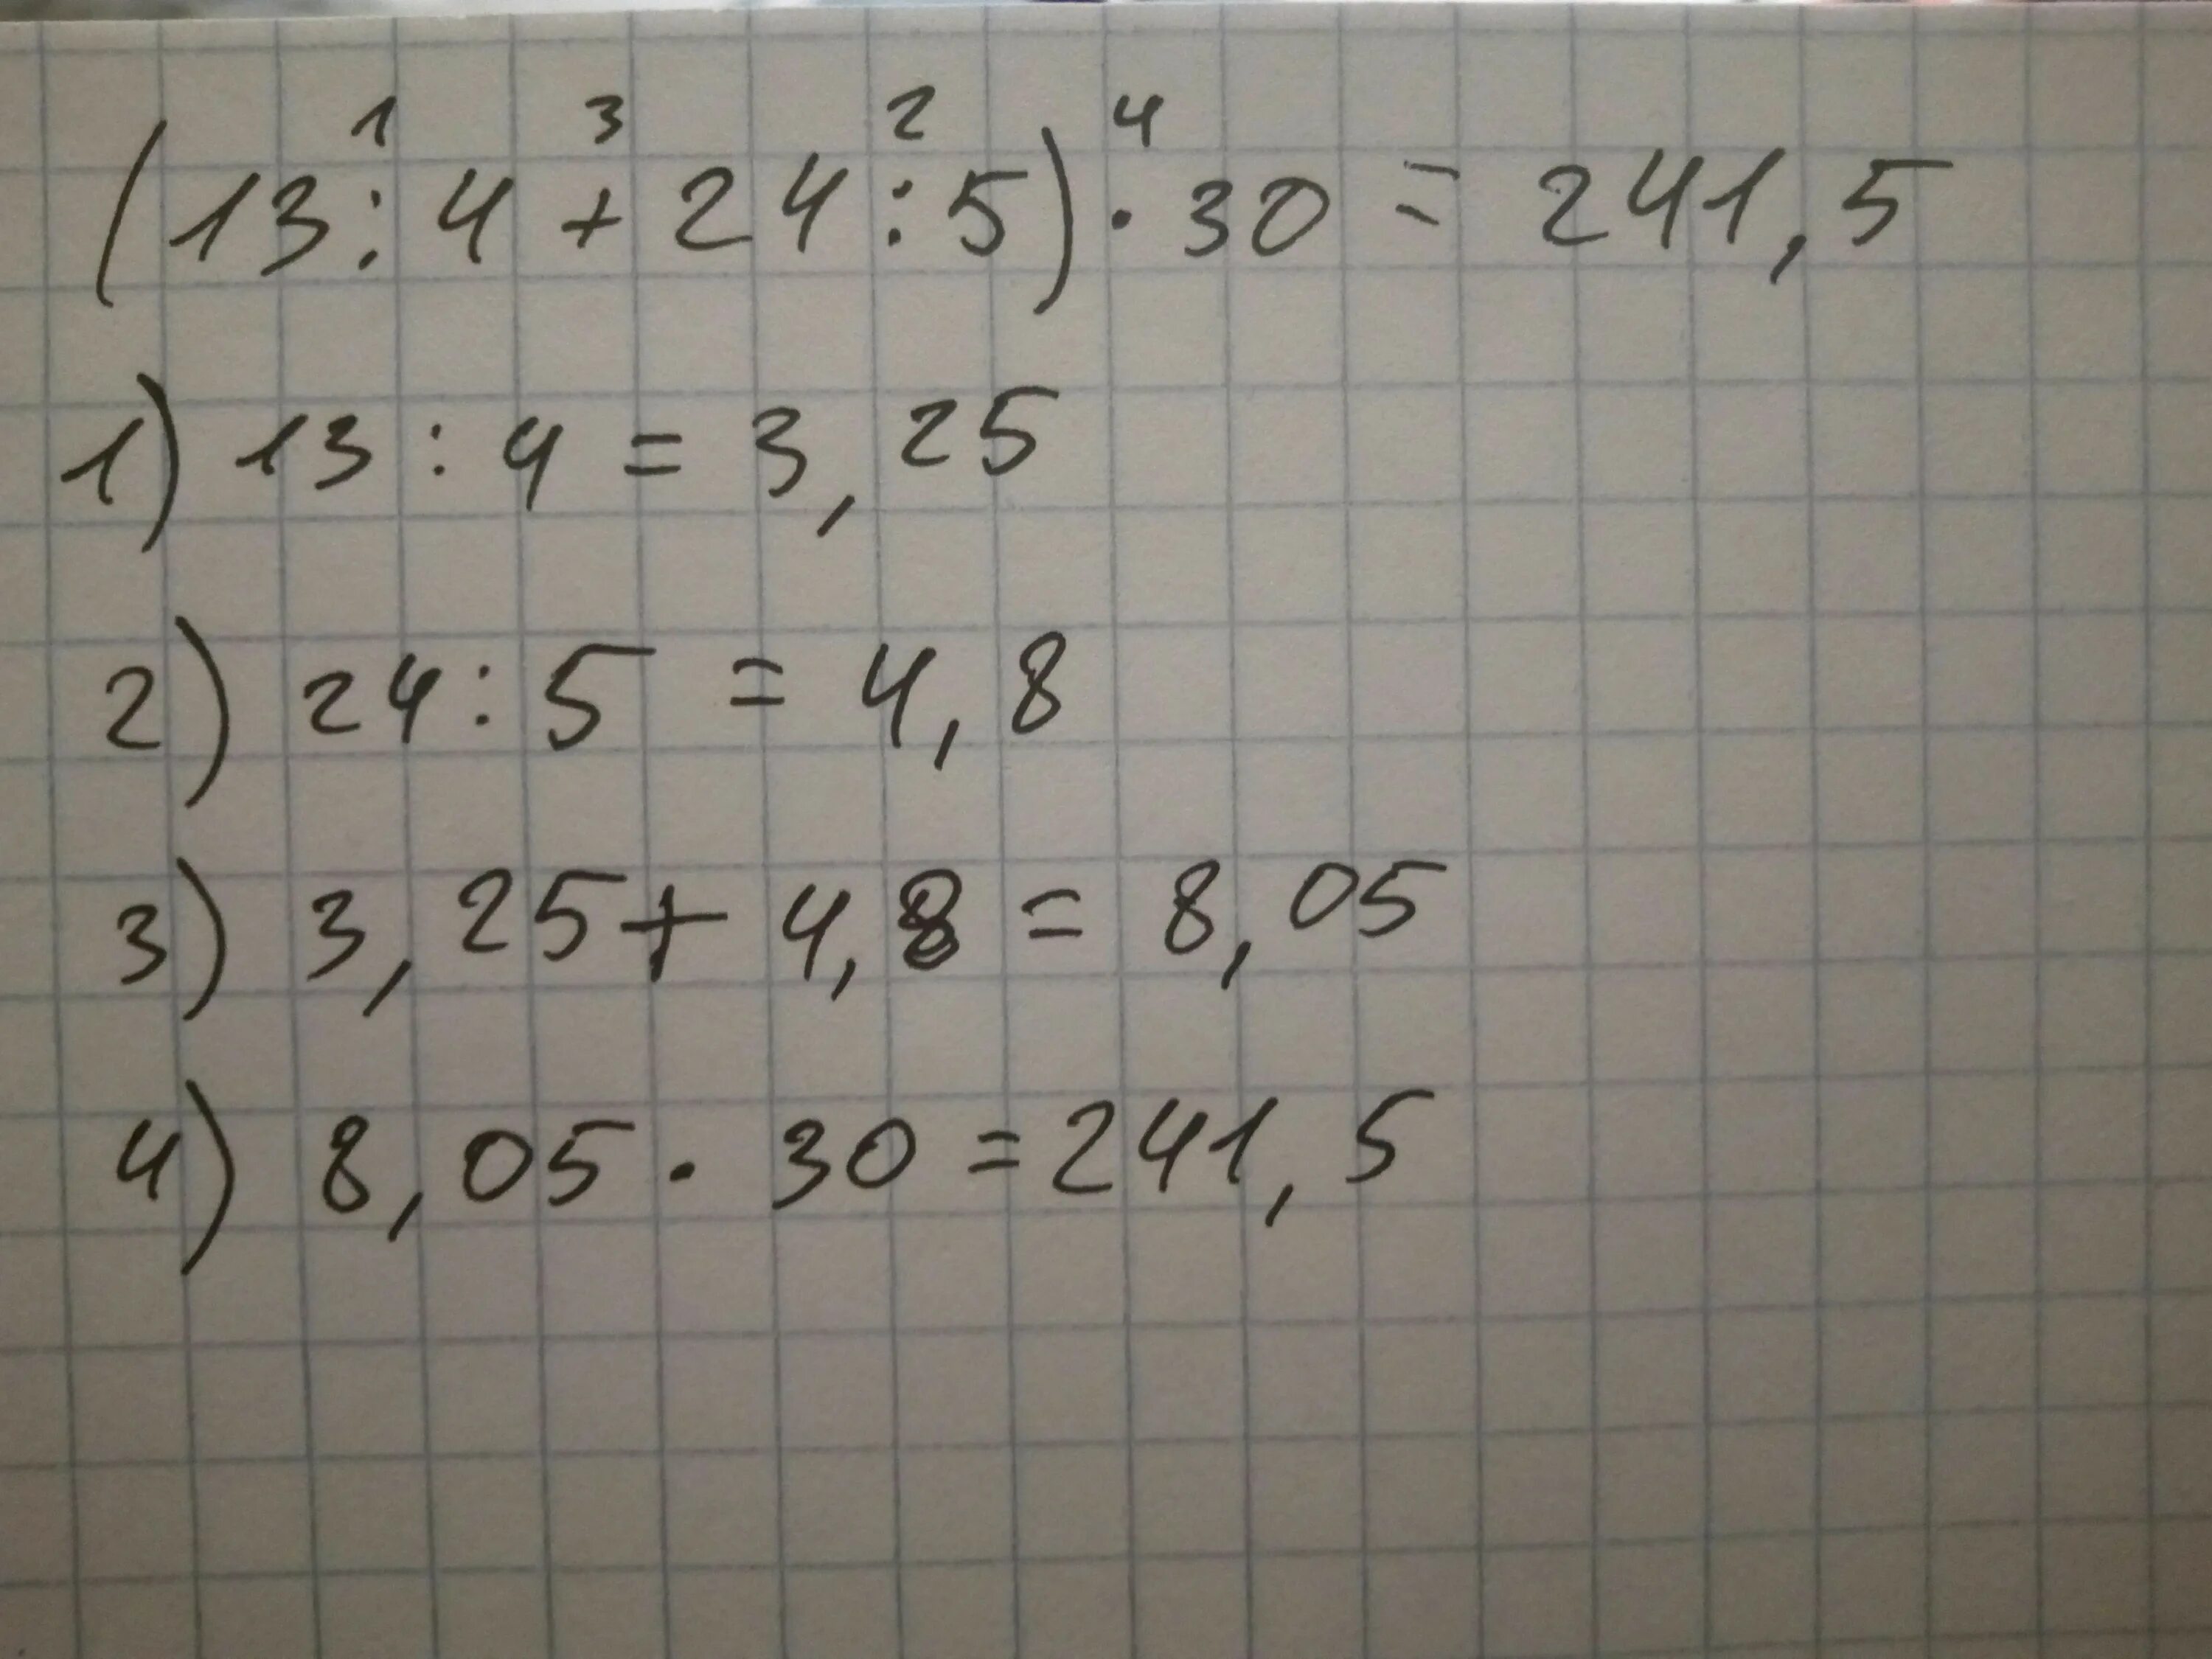 1 3 2 4
(13:4+24:5)·30=241,5
1) 13:4=3,25
2) 24:5=4,8
3) 3,25+4,8=8,05
4) 8,05·30=241,5